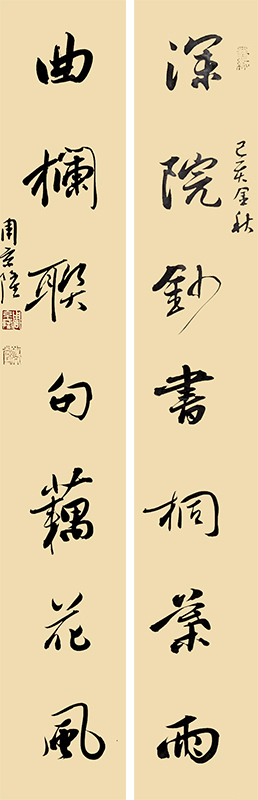 己亥金秋
深院鈔書桐葉雨
曲欄聯句藕花風
周景隆